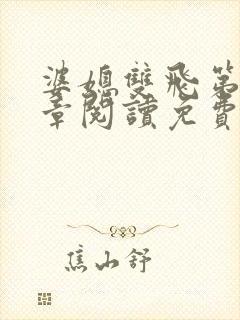 婆媳雙飛第
章閱讀免費
焦山舒